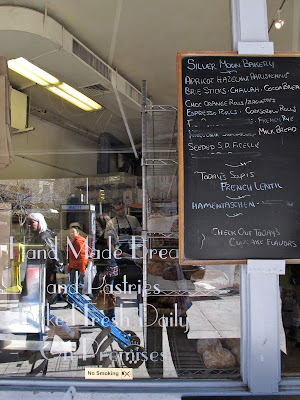 Silver Moon Bakery
Apricot Hazelnut Parisienne
Brie Sticks - Challah - Cocoa Bread
Choc Orange Rolls
Espresso Rolls - Cornsrye Rolls
French Rye
Milk Bread
Seeded S.D. Ficelle
Today's Soup is
French Lentil
Hamentaschen -
Check Out Today's
Cupcake Flavors
Hand Made Bread
and Pastries
Baked Fresh Daily
On Premises
No Smoking